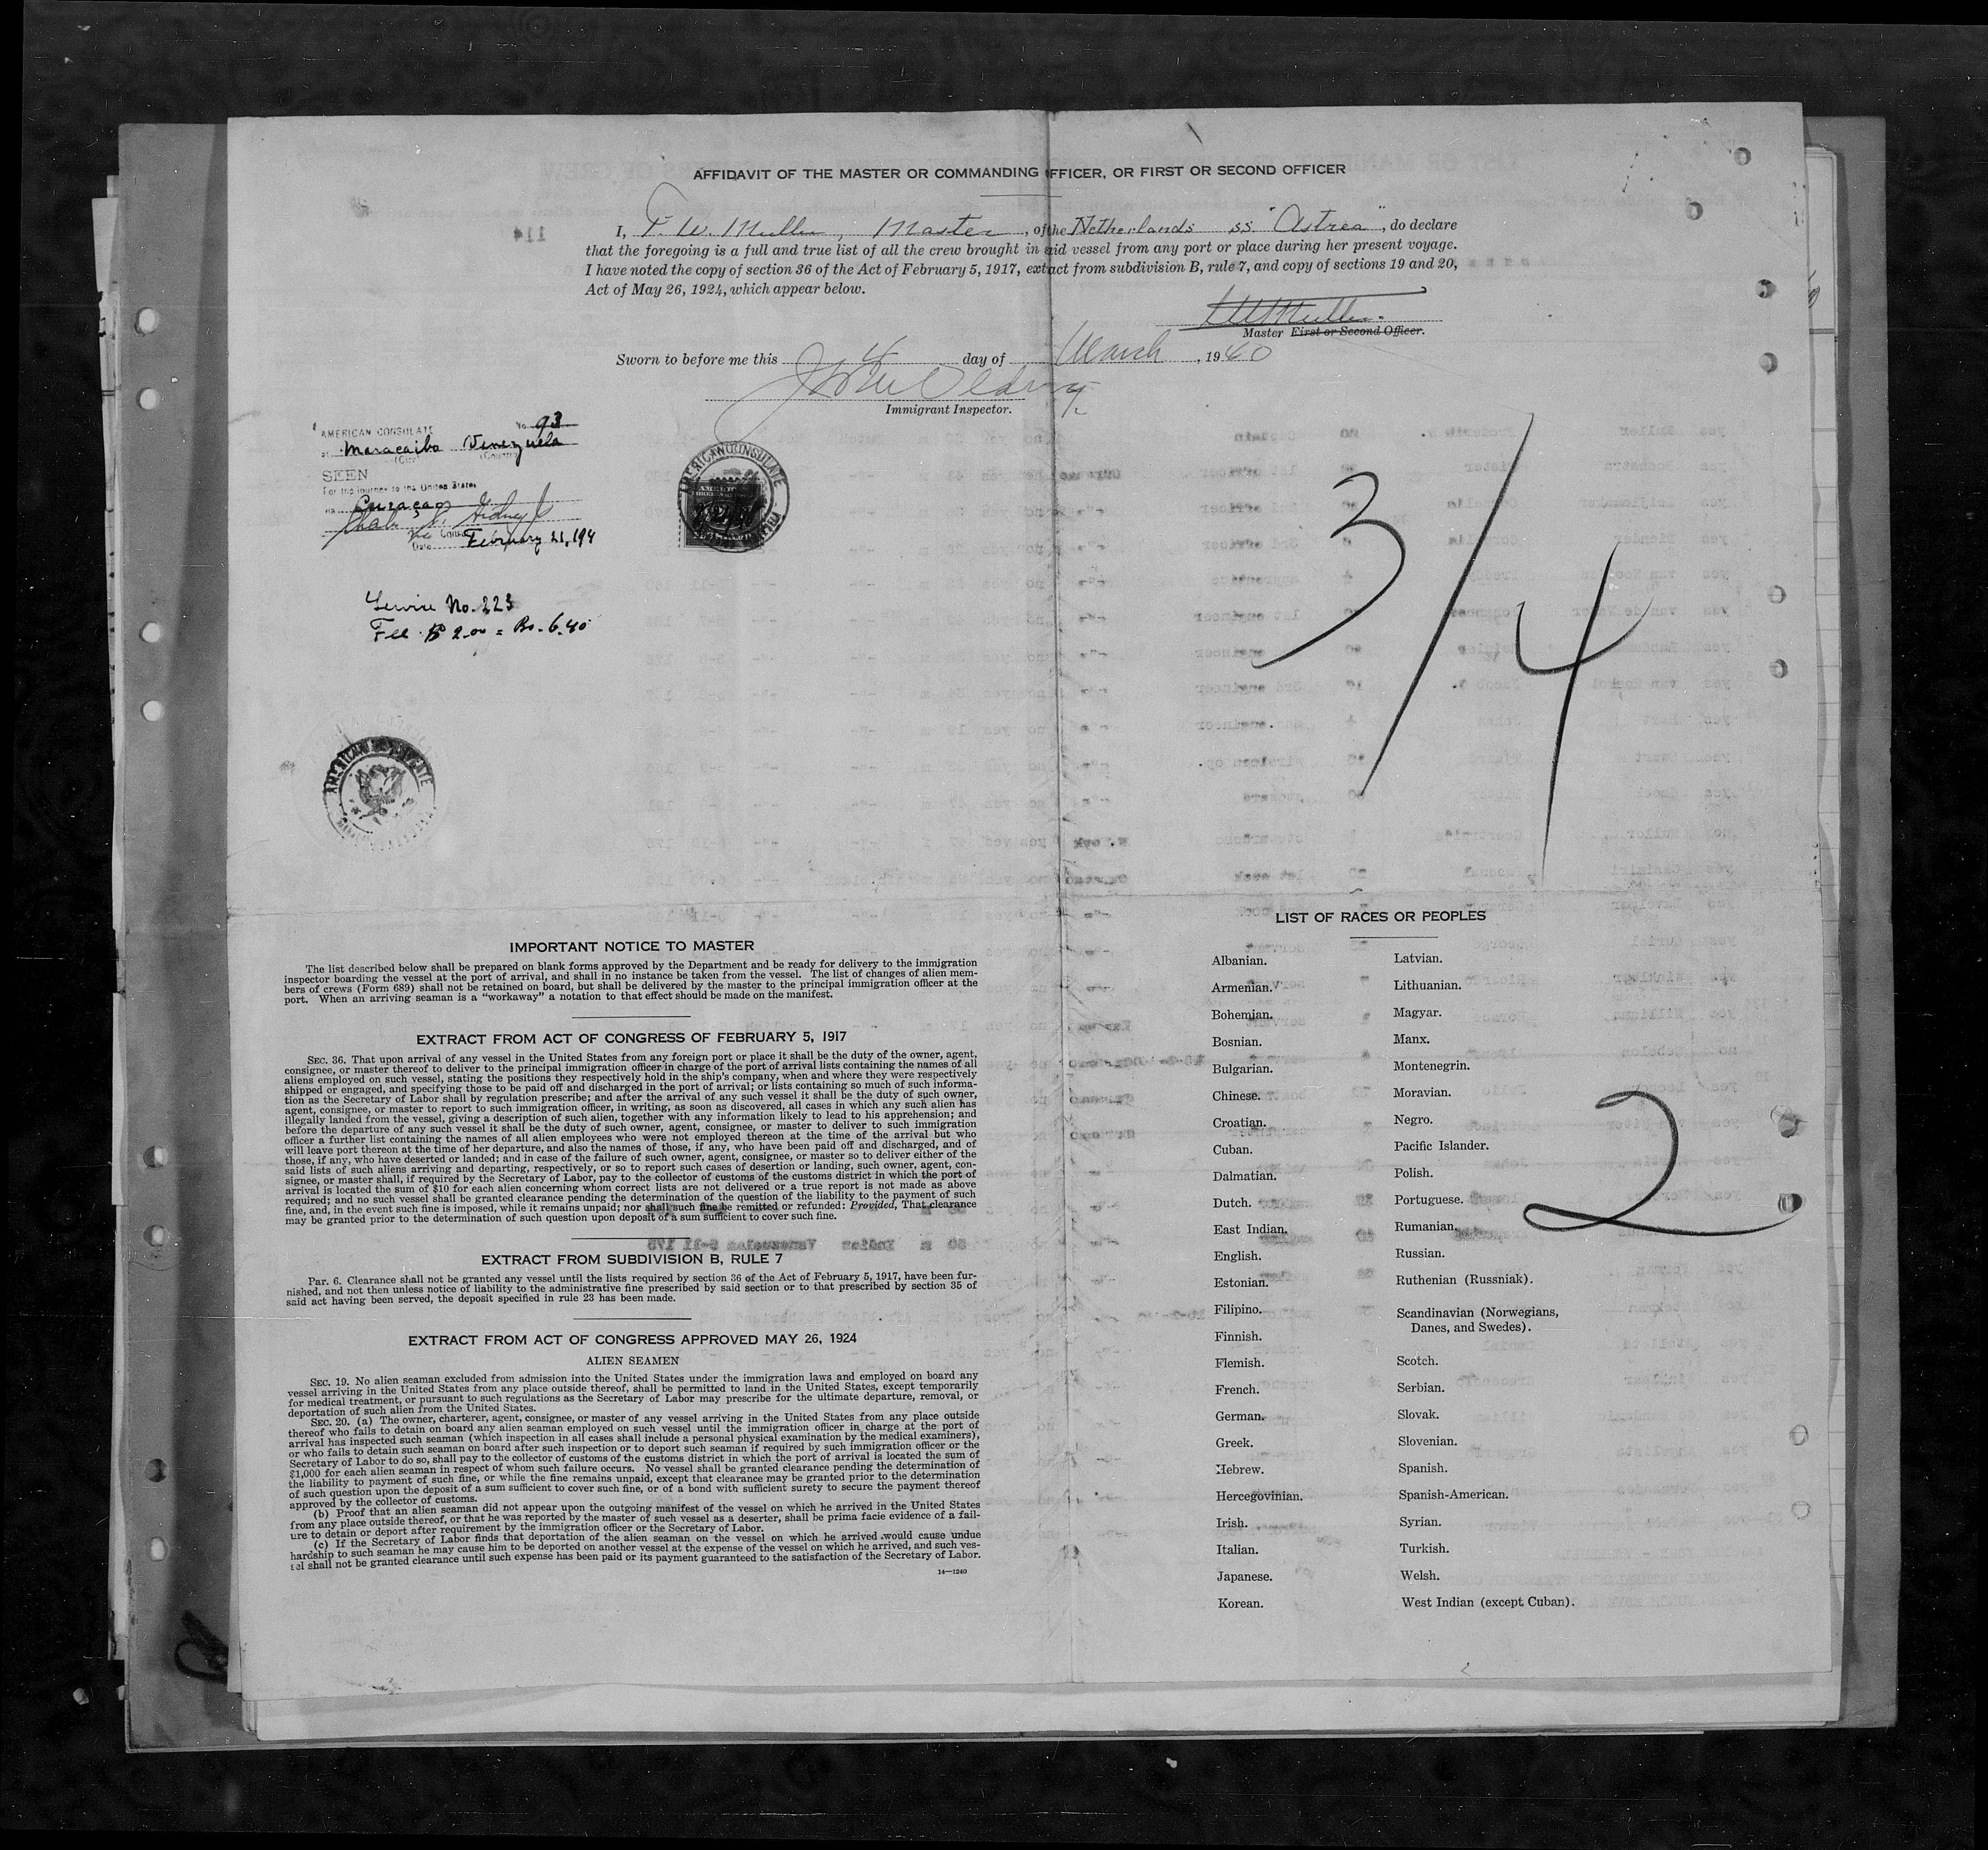 AFFIDAVIT OF THE MASTER OR COMMANDING OFFICER, OR FIRST OR SECOND OFFICER
I, F. W. Muller, Master, of the Netherlands ss "Astrea", do declare
that the foregoing is a full and true list of all the crew brought in said vessel from any port or place during her present voyage.
I have noted the copy of section 36 of the Act of February 5, 1917, extract from subdivision B, rule 7, and copy of sections 19 and 20,
Act of May 26, 1924, which appear below.
Master First or Second Officer.
Sworn to before me this 4 day of March, 1940
Immigrant Inspector.
AMERICAN CONSULATE No. 93
at Maracaibo Venezuela
(City) (Country)
SEEN
For the journey to the United States
via Curaçao
Vice Consul
Date February 21, 194
Service No. 223
Fee $ 2.00 = Bs. 6.40
AMERICAN CONSULATE
AMERICAN CONSULATE
3/4
IMPORTANT NOTICE TO MASTER
The list described below shall be prepared on blank forms approved by the Department and be ready for delivery to the immigration
inspector boarding the vessel at the port of arrival, and shall in no instance be taken from the vessel. The list of changes of alien mem-
bers of crews (Form 689) shall not be retained on board, but shall be delivered by the master to the principal immigration officer at the
port. When an arriving seaman is a "workaway" a notation to that effect should be made on the manifest.
EXTRACT FROM ACT OF CONGRESS OF FEBRUARY 5, 1917
SEC. 36. That upon arrival of any vessel in the United States from any foreign port or place it shall be the duty of the owner, agent,
consignee, or master thereof to deliver to the principal immigration officer in charge of the port of arrival lists containing the names of all
aliens employed on such vessel, stating the positions they respectively hold in the ship's company, when and where they were respectively
shipped or engaged, and specifying those to be paid off and discharged in the port of arrival; or lists containing so much of such informa-
tion as the Secretary of Labor shall by regulation prescribe; and after the arrival of any such vessel it shall be the duty of such owner,
agent, consignee, or master to report to such immigration officer, in writing, as soon as discovered, all cases in which any such alien has
illegally landed from the vessel, giving a description of such alien, together with any information likely to lead to his apprehension; and
before the departure of any such vessel it shall be the duty of such owner, agent, consignee, or master to deliver to such immigration
officer a further list containing the names of all alien employees who were not employed thereon at the time of the arrival but who
will leave port thereon at the time of her departure, and also the names of those, if any, who have been paid off and discharged, and of
those, if any, who have deserted or landed; and in case of the failure of such owner, agent, consignee, or master so to deliver either of the
said lists of such aliens arriving and departing, respectively, or so to report such cases of desertion or landing, such owner, agent, con-
signee, or master shall, if required by the Secretary of Labor, pay to the collector of customs of the customs district in which the port of
arrival is located the sum of $10 for each alien concerning whom correct lists are not delivered or a true report is not made as above
required; and no such vessel shall be granted clearance pending the determination of the question of the liability to the payment of such
fine, and, in the event such fine is imposed, while it remains unpaid; nor shall such fine be remitted or refunded: Provided, That clearance
may be granted prior to the determination of such question upon deposit of a sum sufficient to cover such fine.
EXTRACT FROM SUBDIVISION B, RULE 7
Par. 6. Clearance shall not be granted any vessel until the lists required by section 36 of the Act of February 5, 1917, have been fur-
nished, and not then unless notice of liability to the administrative fine prescribed by said section or to that prescribed by section 35 of
said act having been served, the deposit specified in rule 23 has been made.
EXTRACT FROM ACT OF CONGRESS APPROVED MAY 26, 1924
ALIEN SEAMEN
SEC. 19. No alien seaman excluded from admission into the United States under the immigration laws and employed on board any
vessel arriving in the United States from any place outside thereof, shall be permitted to land in the United States, except temporarily
for medical treatment, or pursuant to such regulations as the Secretary of Labor may prescribe for the ultimate departure, removal, or
deportation of such alien from the United States.
SEC. 20. (a) The owner, charterer, agent, consignee, or master of any vessel arriving in the United States from any place outside
thereof who fails to detain on board any alien seaman employed on such vessel until the immigration officer in charge at the port of
arrival has inspected such seaman (which inspection in all cases shall include a personal physical examination by the medical examiners),
or who fails to detain such seaman on board after such inspection or to deport such seaman if required by such immigration officer or the
Secretary of Labor to do so, shall pay to the collector of customs of the customs district in which the port of arrival is located the sum of
$1,000 for each alien seaman in respect of whom such failure occurs. No vessel shall be granted clearance pending the determination of
the liability to payment of such fine, or while the fine remains unpaid, except that clearance may be granted prior to the determination
of such question upon the deposit of a sum sufficient to cover such fine, or of a bond with sufficient surety to secure the payment thereof
approved by the collector of customs.
(b) Proof that an alien seaman did not appear upon the outgoing manifest of the vessel on which he arrived in the United States
from any place outside thereof, or that he was reported by the master of such vessel as a deserter, shall be prima facie evidence of a fail-
ure to detain or deport after requirement by the immigration officer or the Secretary of Labor.
(c) If the Secretary of Labor finds that deportation of the alien seaman on the vessel on which he arrived would cause undue
hardship to such seaman he may cause him to be deported on another vessel at the expense of the vessel on which he arrived, and such ves-
sel shall not be granted clearance until such expense has been paid or its payment guaranteed to the satisfaction of the Secretary of Labor.
14—1240
LIST OF RACES OR PEOPLES
Albanian.
Armenian.
Bohemian.
Bosnian.
Bulgarian.
Chinese.
Croatian.
Cuban.
Dalmatian.
Dutch.
East Indian.
English.
Estonian.
Filipino.
Finnish.
Flemish.
French.
German.
Greek.
Hebrew.
Hercegovinian.
Irish.
Italian.
Japanese.
Korean.
Latvian.
Lithuanian.
Magyar.
Manx.
Montenegrin.
Moravian.
Negro.
Pacific Islander.
Polish.
Portuguese.
Rumanian.
Russian.
Ruthenian (Russniak).
Scandinavian (Norwegians,
Danes, and Swedes).
Scotch.
Serbian.
Slovak.
Slovenian.
Spanish.
Spanish-American.
Syrian.
Turkish.
Welsh.
West Indian (except Cuban).
2